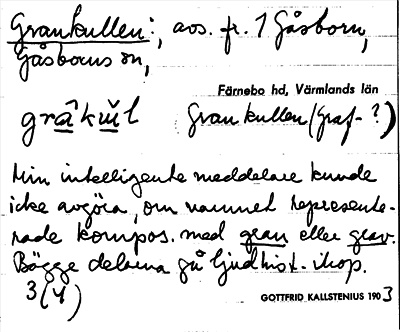 Grankullen:, avs. fr. 1 Gåsborn,
Gåsborns sn,
Färnebo hd, Värmlands län
grâkŭl Grankullen (Graf-?)
Min intelligente meddelare kunde
icke avgöra, om namnet represente-
rade kompos. med gran eller grav.
Bägge delarna gå ljudhist. ihop.
3(4)
GOTTFRID KALLSTENIUS 1903